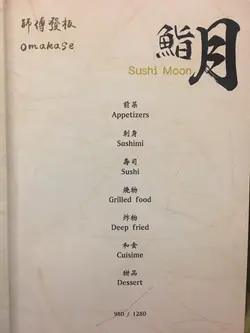 師傅發板
omakase
鮨月
Sushi Moon
前菜
Appetizers
刺身
Sashimi
壽司
Sushi
燒物
Grilled food
炸物
Deep fried
和食
Cuisime
甜品
Dessert
980 / 1280